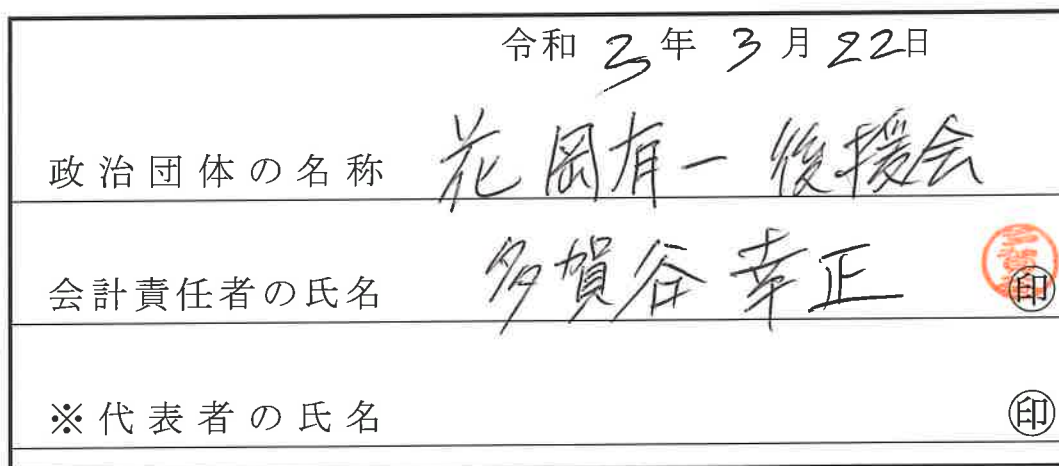 令和 3年 3月 22日
政治団体の名称 花岡有一後援会
会計責任者の氏名 多賀谷幸正 ㊞
※代表者の氏名 ㊞